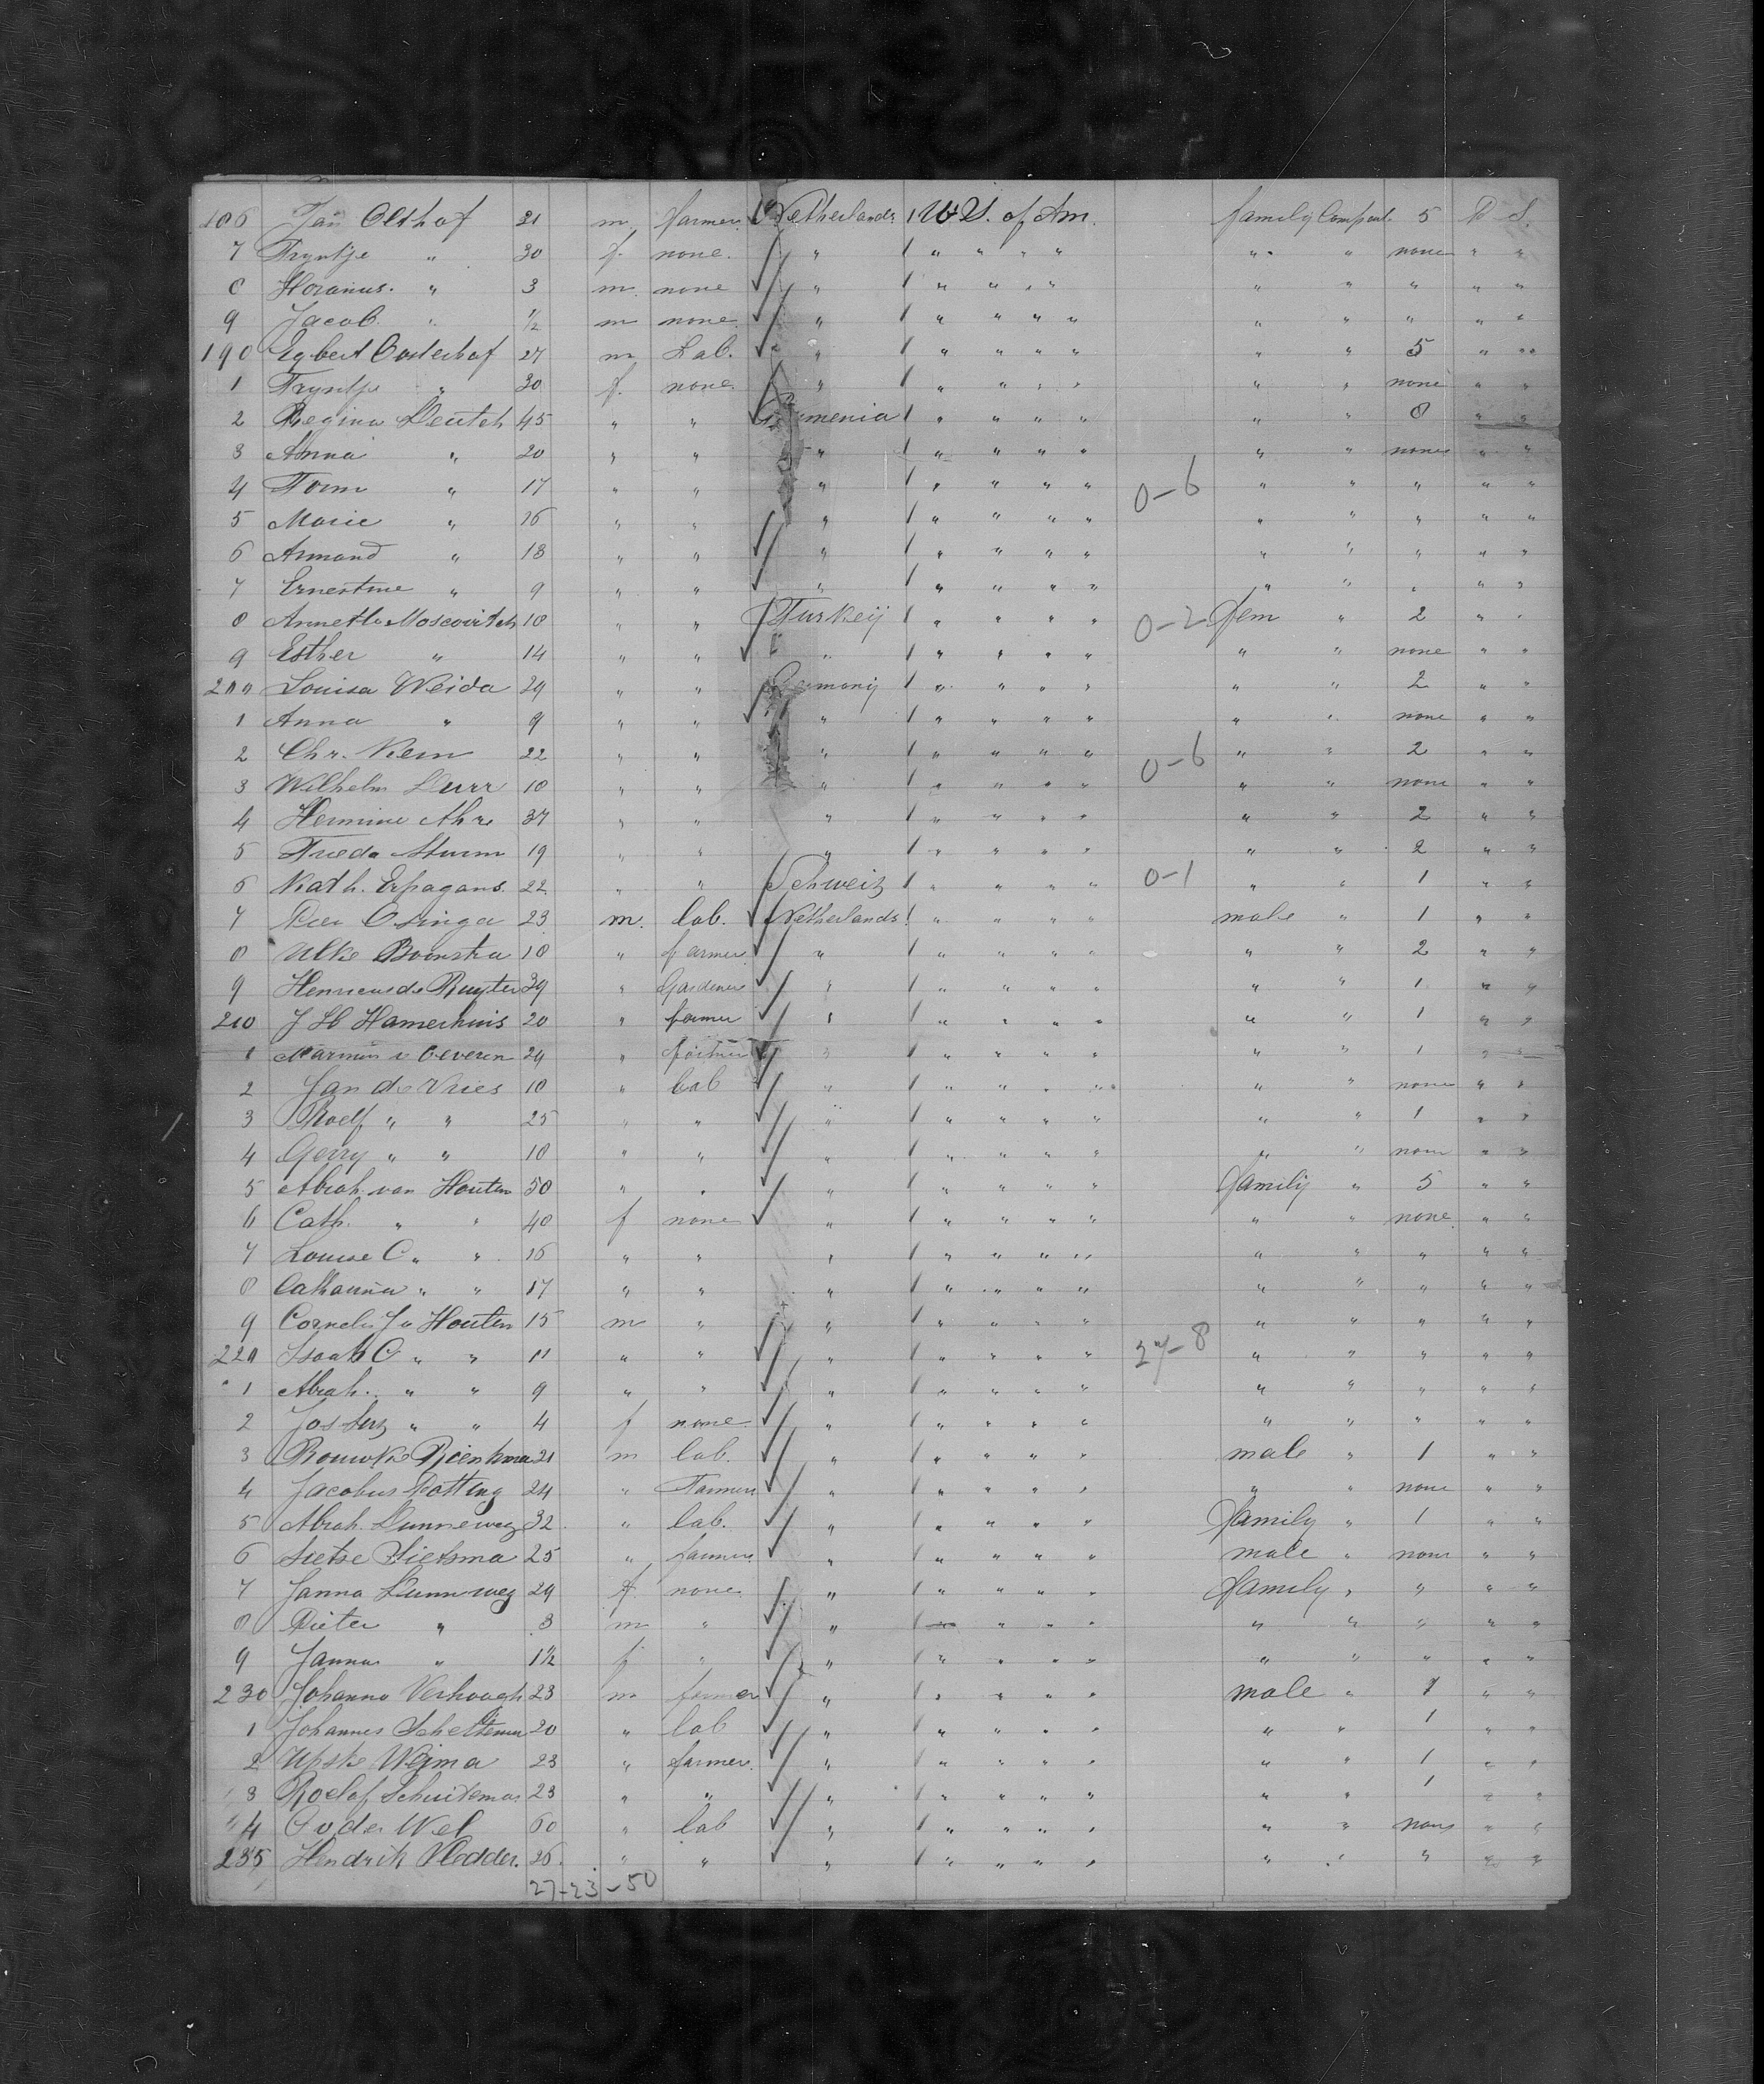 106 Jan Olthof 31 m farmer Netherlands U.S. of Am. family Compart. 5 D S.
7 Tryntje " 30 f. none. " " " " " " " none " "
8 Horanius. " 3 m. none " " " " " " " " " "
9 Jacob. " 1/2 m none " " " " " " " " " "
190 Egbert Oosterhof 27 m Lab. " " " " " " " 5 " "
1 Tryntje " 30 f. none " " " " " " " none " "
2 Regina Deutch 45 " " Rumenia " " " " " " 0 " "
3 Anna " 20 " " " " " " " " " none " "
4 Toni " 17 " " " " " " " 0-6 " " " " "
5 Marie " 16 " " " " " " " " " " " "
6 Armand " 18 " " " " " " " " " " " "
7 Ernestine " 9 " " " " " " " " " " " "
8 Annette Moscovitch 18 " " Turkeij " " " " 0-2 fem " 2 " "
9 Esther " 14 " " " " " " " " " none " "
200 Louisa Weida 29 " " Germanij " " " " " " 2 " "
1 Anna " 9 " " " " " " " " " none " "
2 Chr. Kern 22 " " " " " " " 0-6 " " 2 " "
3 Wilhelm Durr 18 " " " " " " " " " none " "
4 Hermine Ahr 37 " " " " " " " " " 2 " "
5 Frieda Sturm 19 " " " " " " " " " 2 " "
6 Kath. 22 " " Schweiz " " " " 0-1 " " 1 " "
7 Osinga 23 m. lab. Netherlands " " " " male " 1 " "
8 Ulke Boonstra 18 " farmer " " " " " " " 2 " "
9 Henricus de Ruyter 39 " Gardener " " " " " " " 1 " "
210 J H Hamerhuis 20 " farmer " " " " " " " 1 " "
1 v Oeveren 29 " " " " " " " " 1 " "
2 Jan de Vries 18 " lab " " " " " " " none " "
3 Roelf " " 25 " " " " " " " " " 1 " "
4 Gerry " " 18 " " " " " " " " " none " "
5 Abrah. van Houten 50 " " " " " " " family " 5 " "
6 Cath. " " 40 f none " " " " " " " none " "
7 Louise C " " 16 " " " " " " " " " " " "
8 Catharina " " 17 " " " " " " " " " " " "
9 Cornelis J v Houten 15 m " " " " " " " " " " "
220 Isaak C " " 11 " " " " " " " 27-8 " " " " "
1 Abrah. " " 9 " " " " " " " " " " " "
2 " " 4 f none " " " " " " " " " "
3 Bouwke 21 m lab. " " " " " male " 1 " "
4 Jacobus Potting 24 " Farmer " " " " " " " none " "
5 Abrah. Dunneweg 32 " lab. " " " " " family " 1 " "
6 Sietse Sietsma 25 " farmer " " " " " male " none " "
7 Janna Dunneweg 29 f none " " " " " family " " " "
8 Pieter " 3 m " " " " " " " " " " "
9 Janna " 1 1/2 f " " " " " " " " " " "
230 Johanna Verhough 23 m farmer " " " " " male " 1 " "
1 Johannes Scheltema 20 " lab " " " " " " " 1 " "
2 Upske Weima 23 " farmer. " " " " " " " 1 " "
3 Roelof Schuitema 23 " " " " " " " " " 1 " "
4 C v der Wel 60 " lab " " " " " " " none " "
235 Hendrik Vledder. 26 " " " " " " " " " " " "
27-23-50